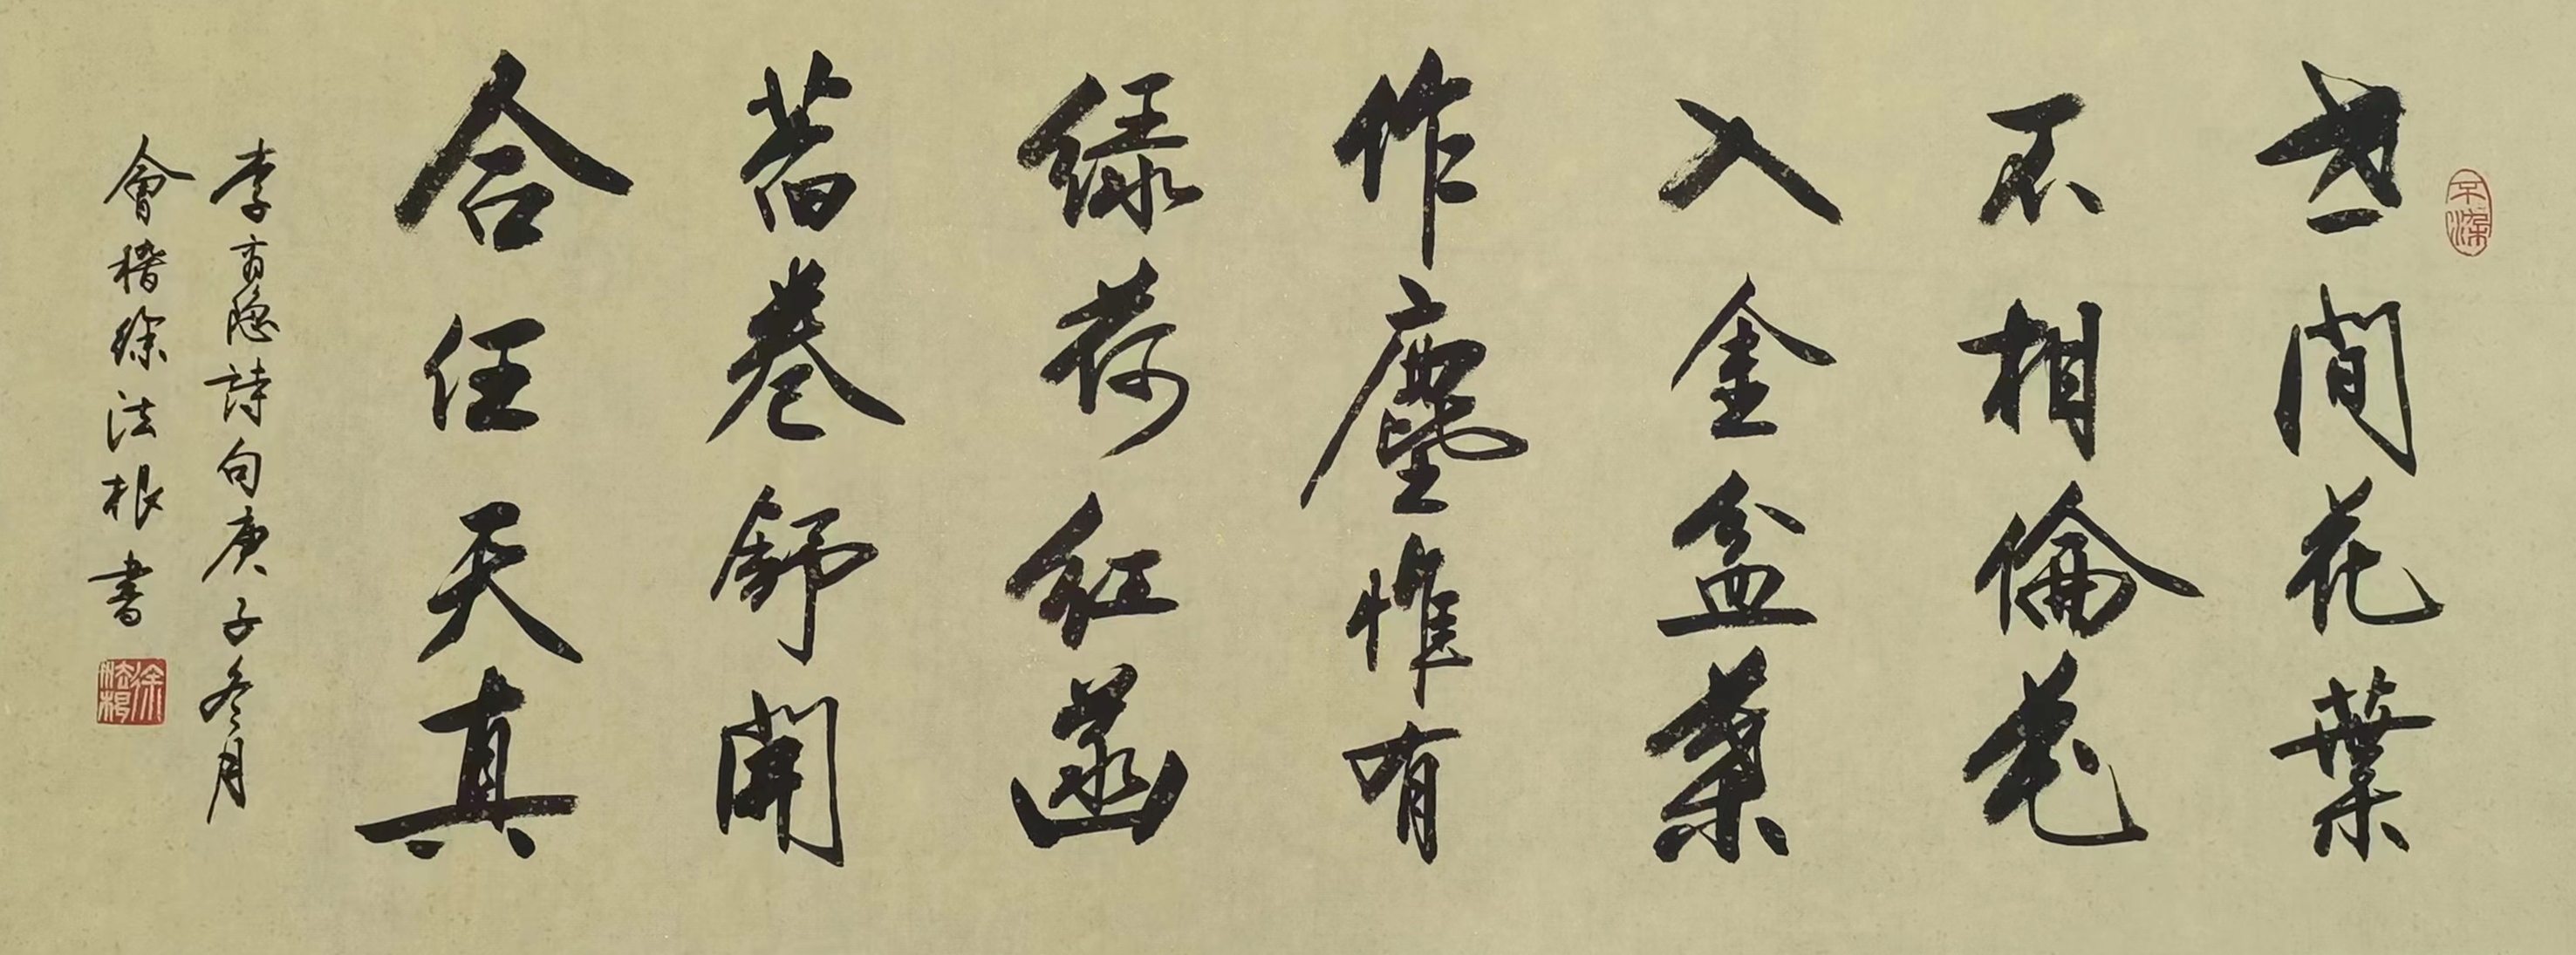 世间花葉
不相倫花
入金盆葉
作塵惟有
绿荷红菡
萏卷舒開
合任天真
李商隐詩句庚子冬月
會稽徐法根書
徐法根